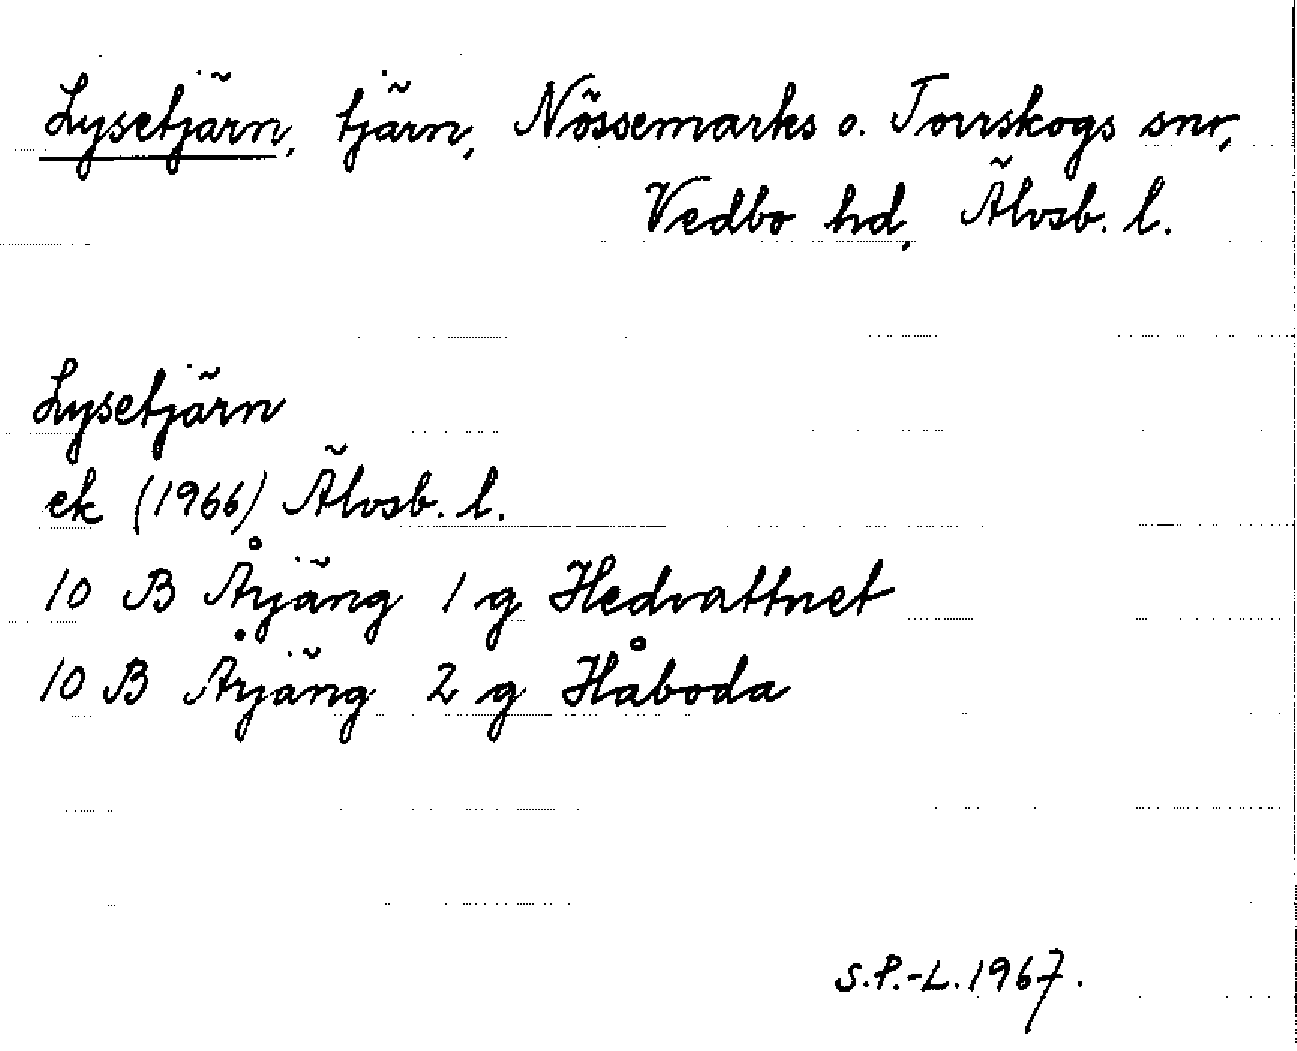 Lysetjärn, tjärn, Nössemarks o. Torrskogs snr,
Vedbo hd, Älvsb. l.
Lysetjärn
ek (1966) Älvsb. l.
10 B Årjäng 1 g Hedvattnet
10 B Årjäng 2 g Håboda
S.P.-L. 1967.